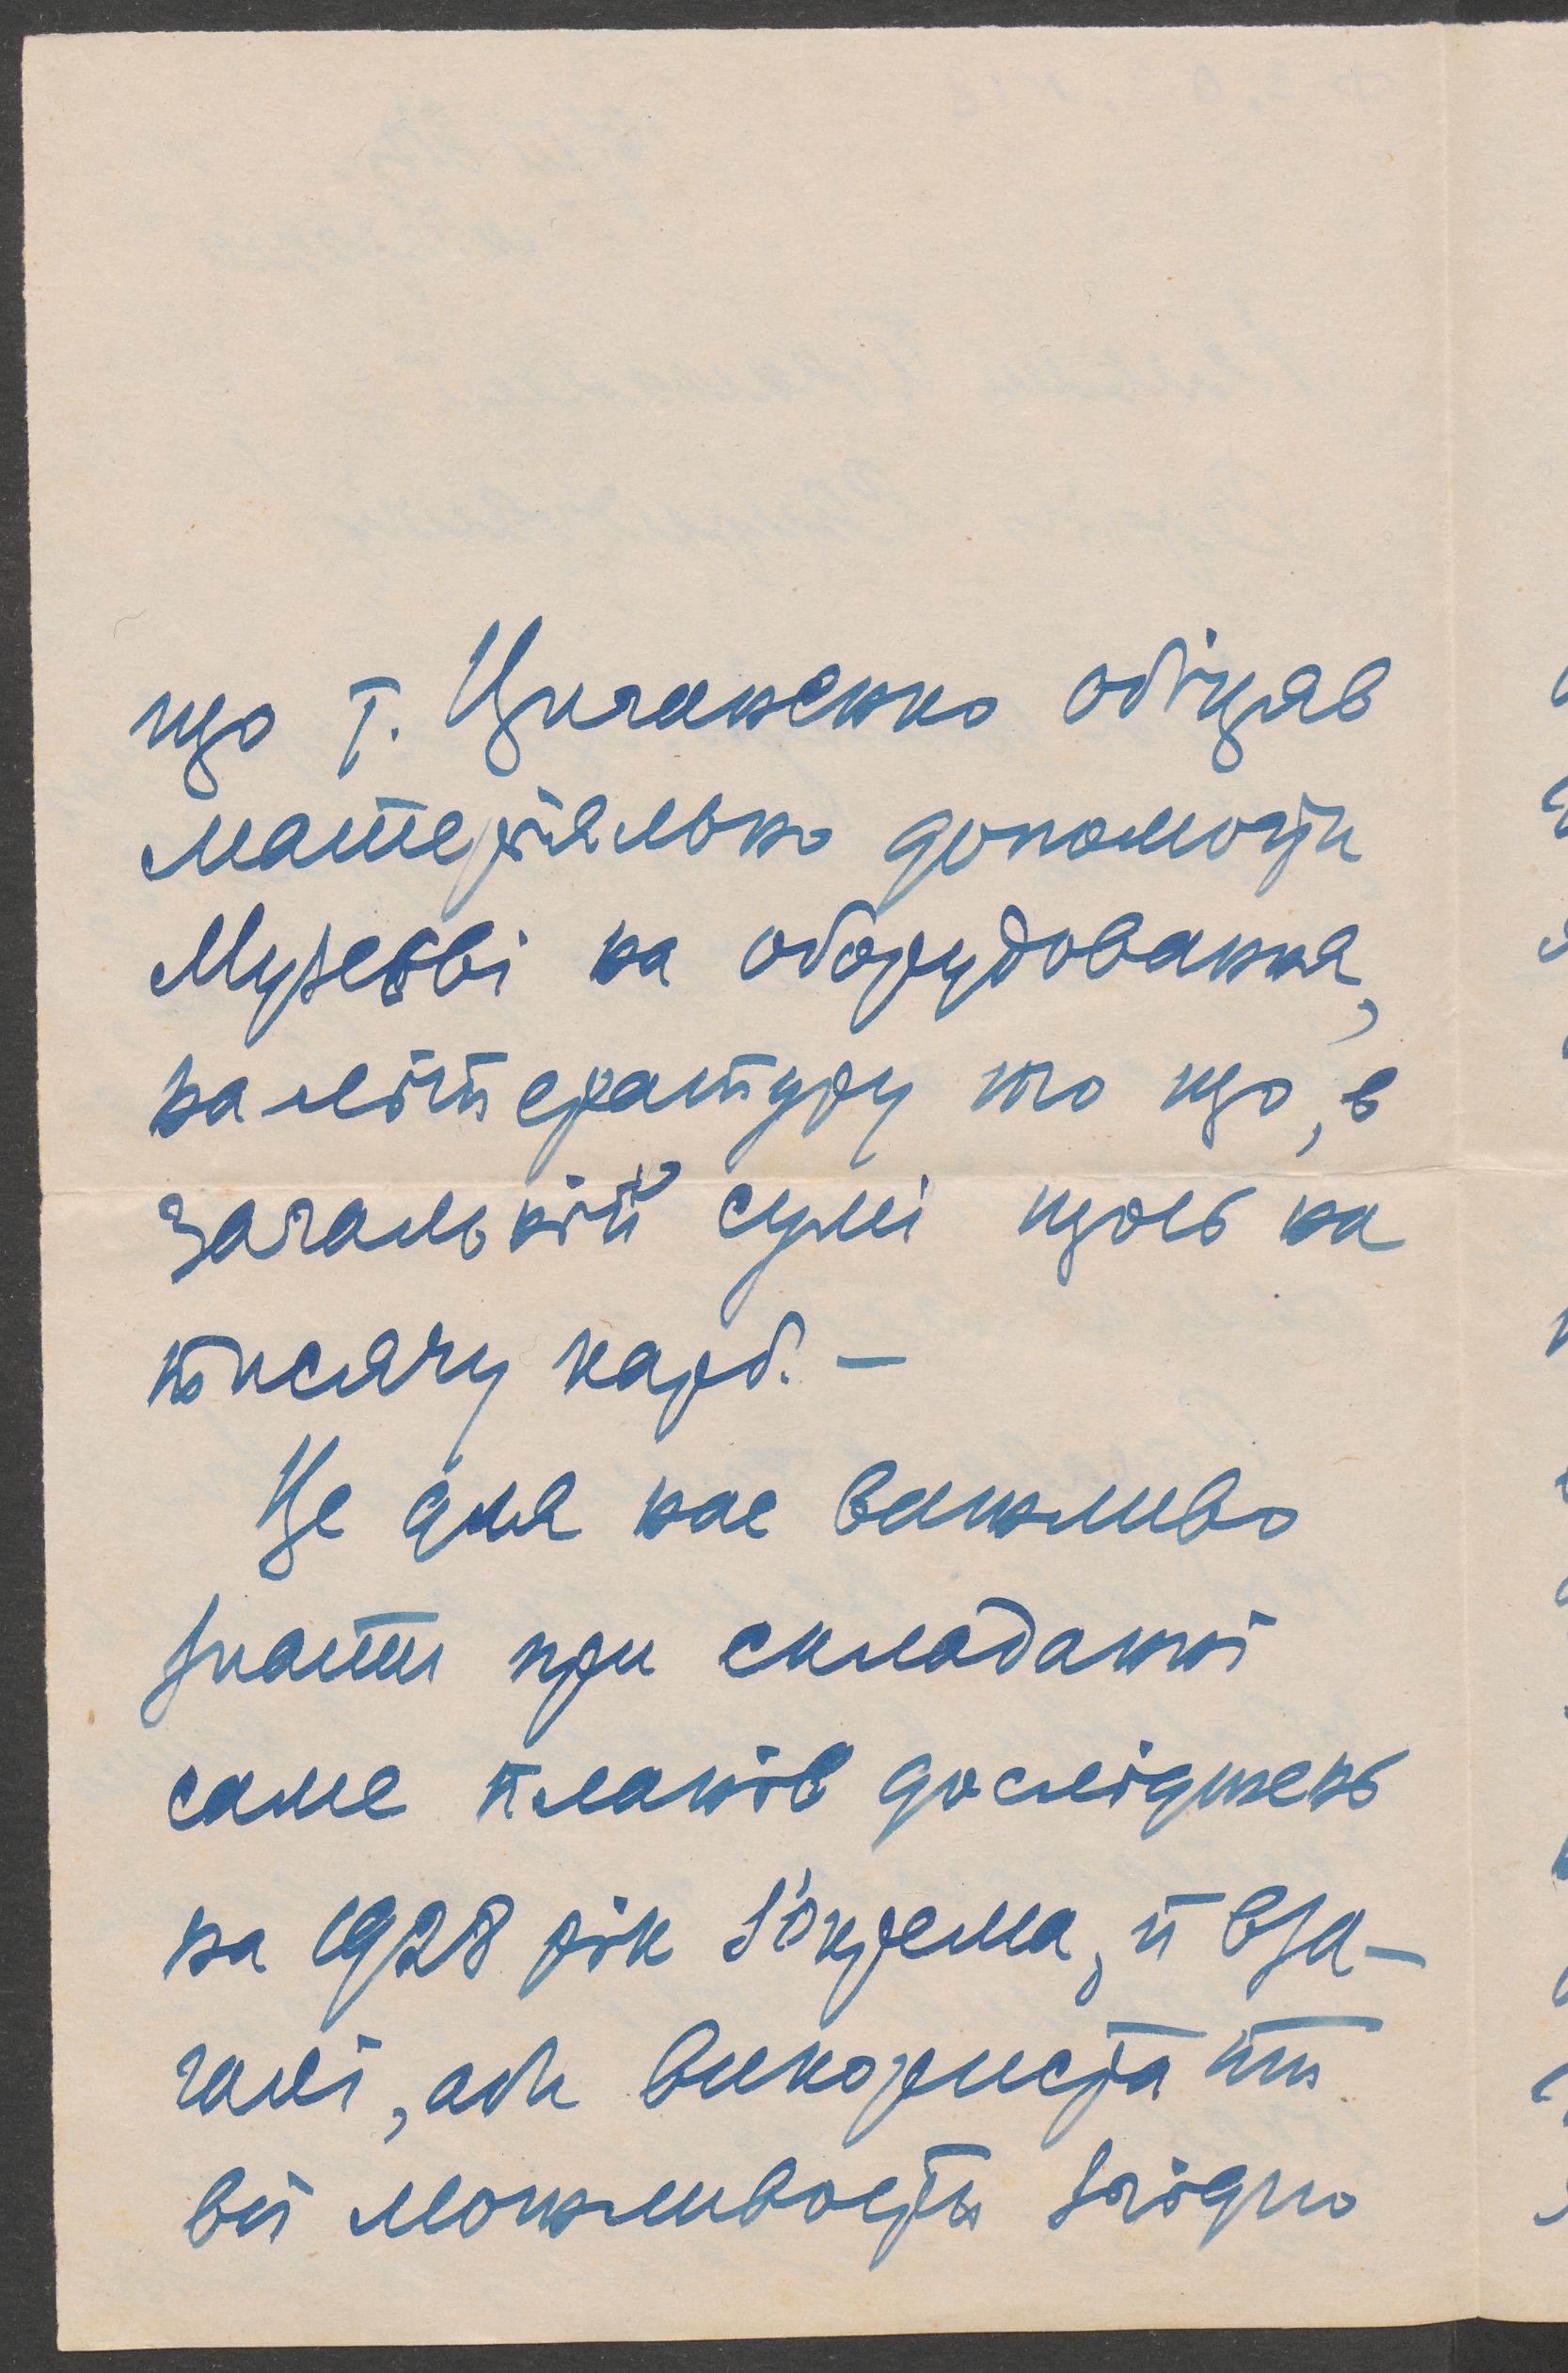 що т. Циганенко обіцяв
матеріяльно допомогти
Музеєві на оборудовання,
на літературу то що, в
загальній сумі щось на
тисячу карб. —
Це для нас важливо
знати при складанні
саме планів досліджень
на 1928 рік зокрема, й вза-
галі, аби використати
всі можливости згідно